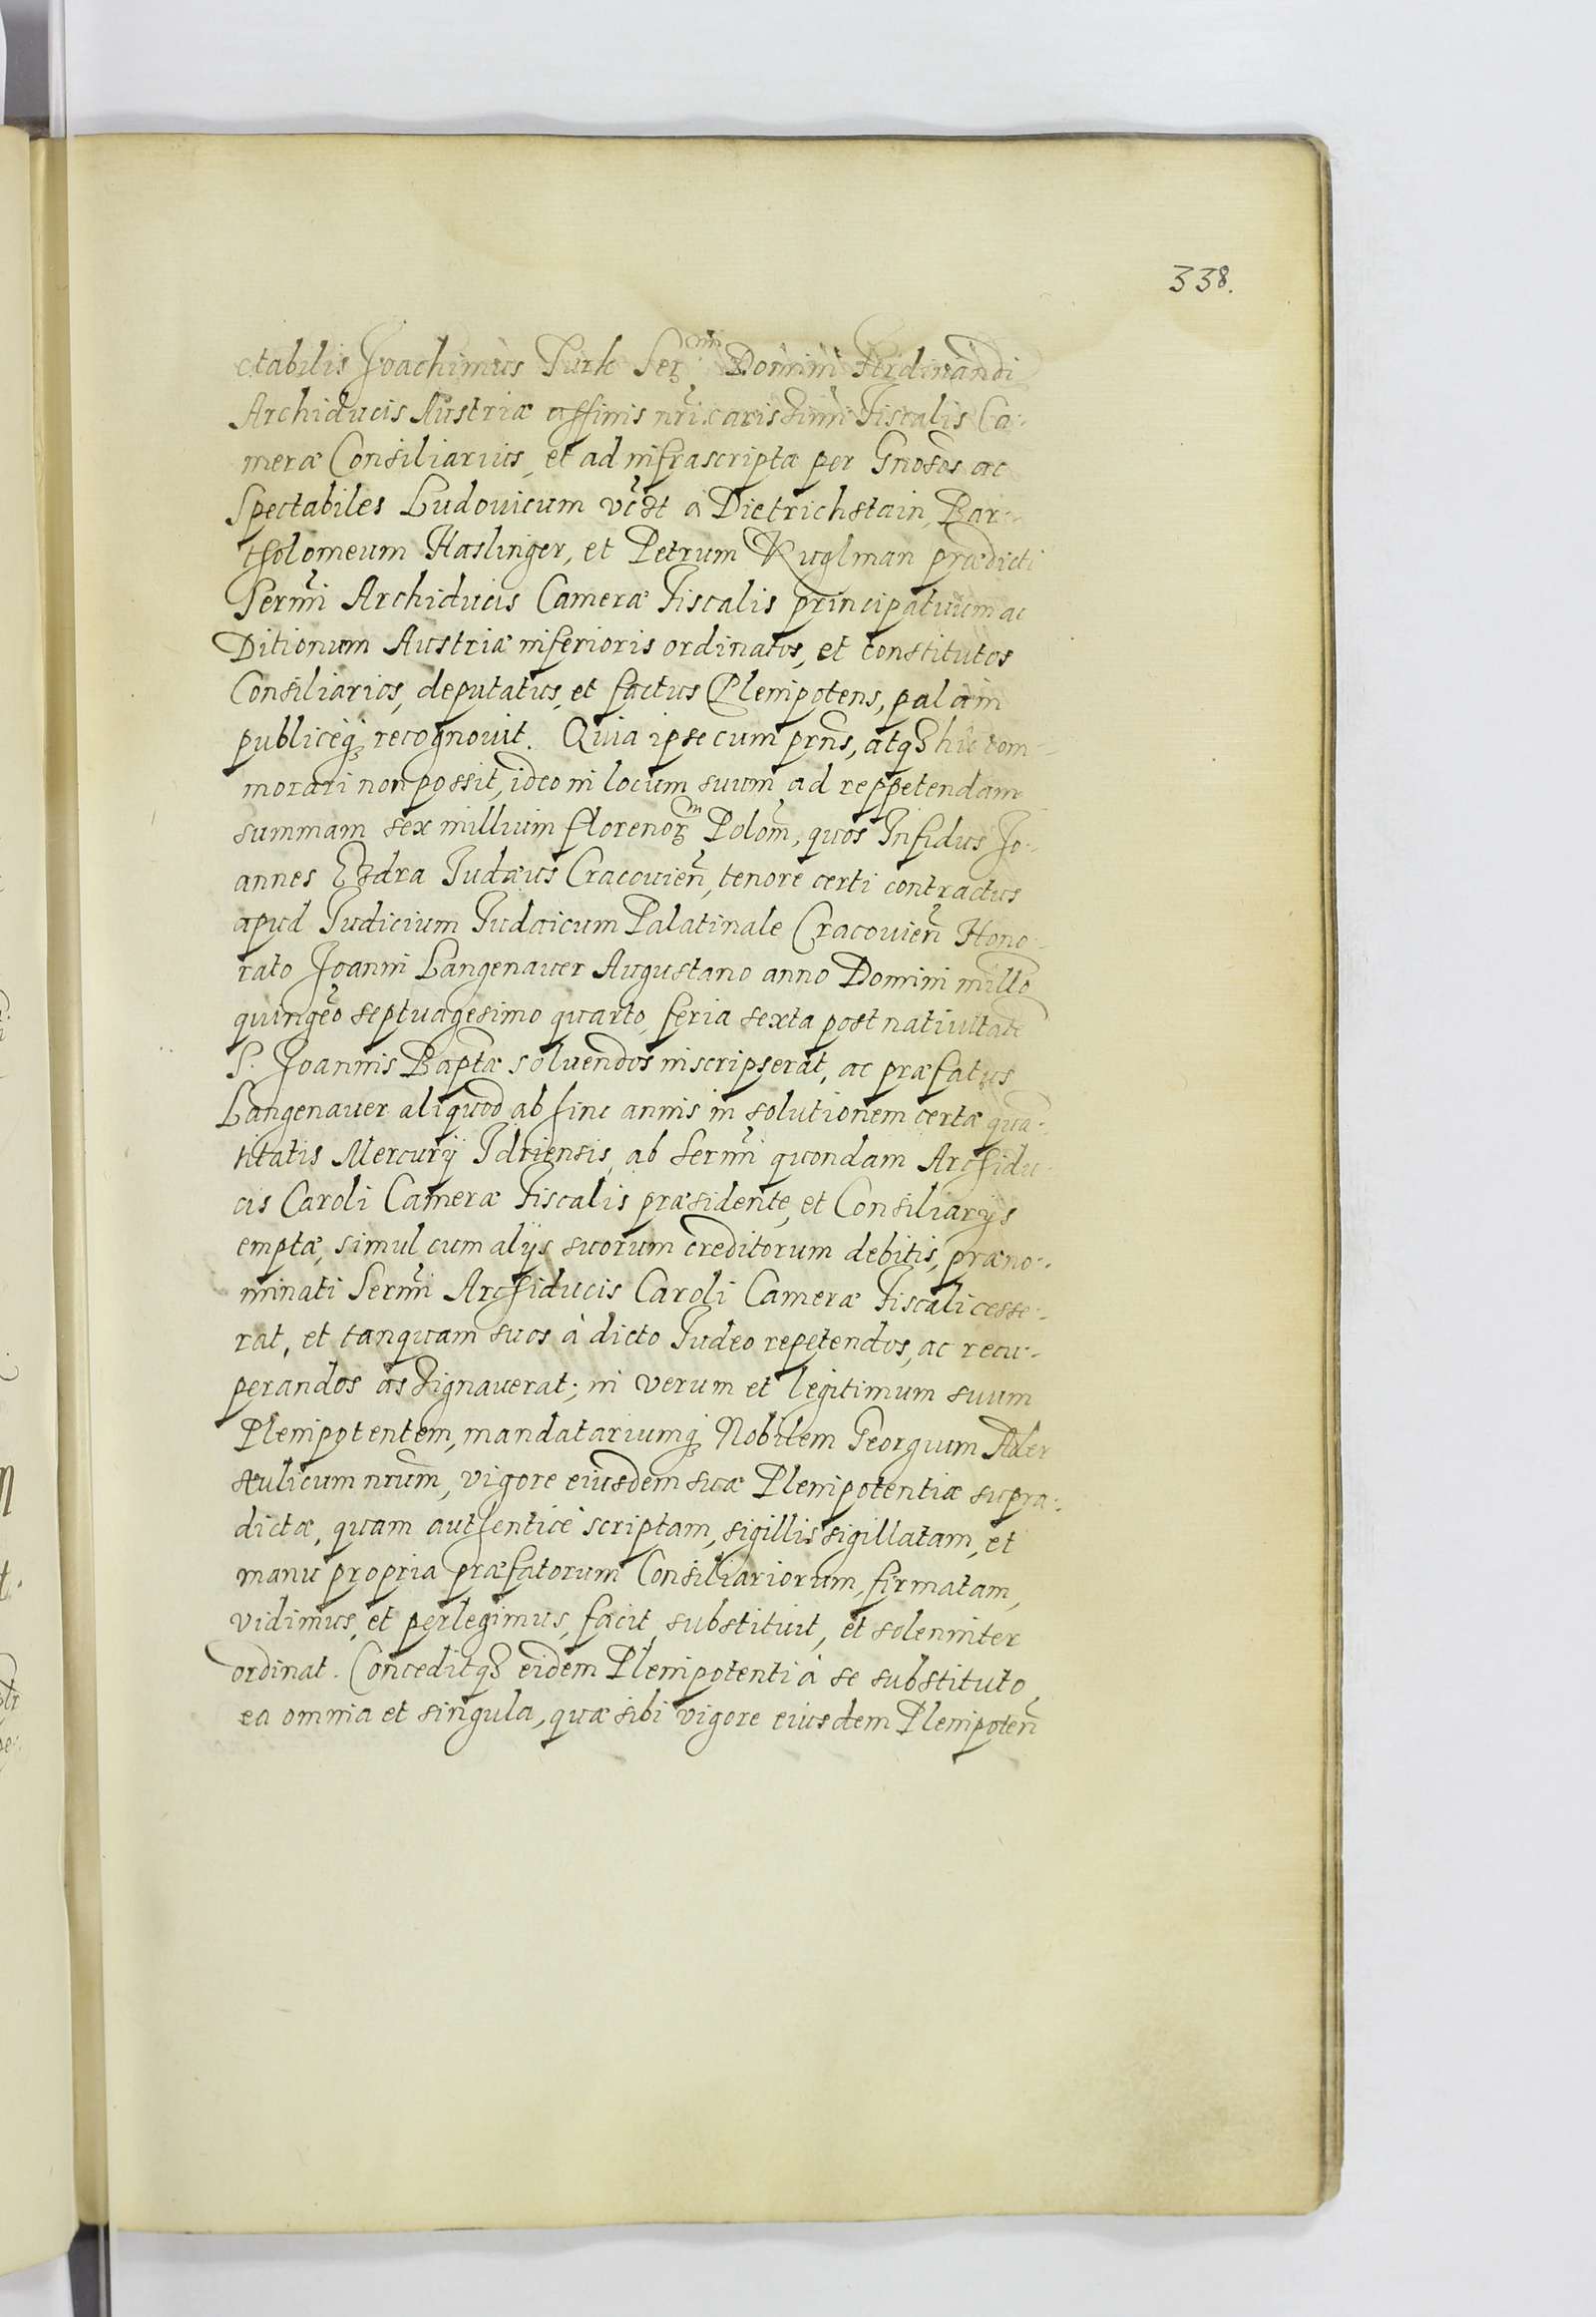 338.
ctabilis Joachimus Turk Ser.mi Domini Ferdinandi
Archiducis Austriæ affinis nri carissimi Fiscalis Ca-
meræ Consiliarius, et ad infrascripta per Gnosos ac
Spectabiles Ludouicum à Dietrichstain, Bar-
tholomeum Haslinger, et Petrum Kuglman prædicti
Sermi Archiducis Cameræ Fiscalis principatuum ac
Ditionum Austriæ inferioris ordinatos, et constitutos
Consiliarios, deputatus, et factus Plenipotens, palam
publiceq; recognouit. Quia ipse cum prns, atq; hic com-
morari non possit, ideo in locum suum ad reppetendam
summam sex millium florenor. Polon, quos Infidus Jo-
annes Ezdra Judæus Cracouien, tenore certi contractus
apud Judicium Judaicum Palatinale Cracouien Hono-
rato Joanni Langenauer Augustano anno Domini millo
quingeo septuagesimo quarto, feria sexta post natiuitate
S. Joannis Baptæ soluendos inscripserat, ac præfatus
Langenauer aliquod ab hinc annis in solutionem certæ qua-
ntitatis Mercurij Idriensis, ab Sermi quondam Archidu-
cis Caroli Cameræ Fiscalis præsidente, et Consiliarijs
emptæ, simul cum alijs suorum creditorum debitis, præno-
minati Sermi Archiducis Caroli Cameræ Fiscali cesse-
rat, et tanquam suos à dicto Judeo repetendos, ac recu-
perandos assignauerat; in verum et legitimum suum
Plenipotentem, mandatariumq; Nobilem Georgium Ader
Aulicum nrum, vigore eiusdem suæ Plenipotentiæ supra-
dictæ, quam authenticè scriptam, sigillis sigillatam, et
manu propria præfatorum Consiliariorum, firmatam,
vidimus, et perlegimus, facit, substituit, et solenniter
ordinat. Conceditq; eidem Plenipotenti à se substituto,
ea omnia et singula, quæ sibi vigore eiusdem Plenipoten